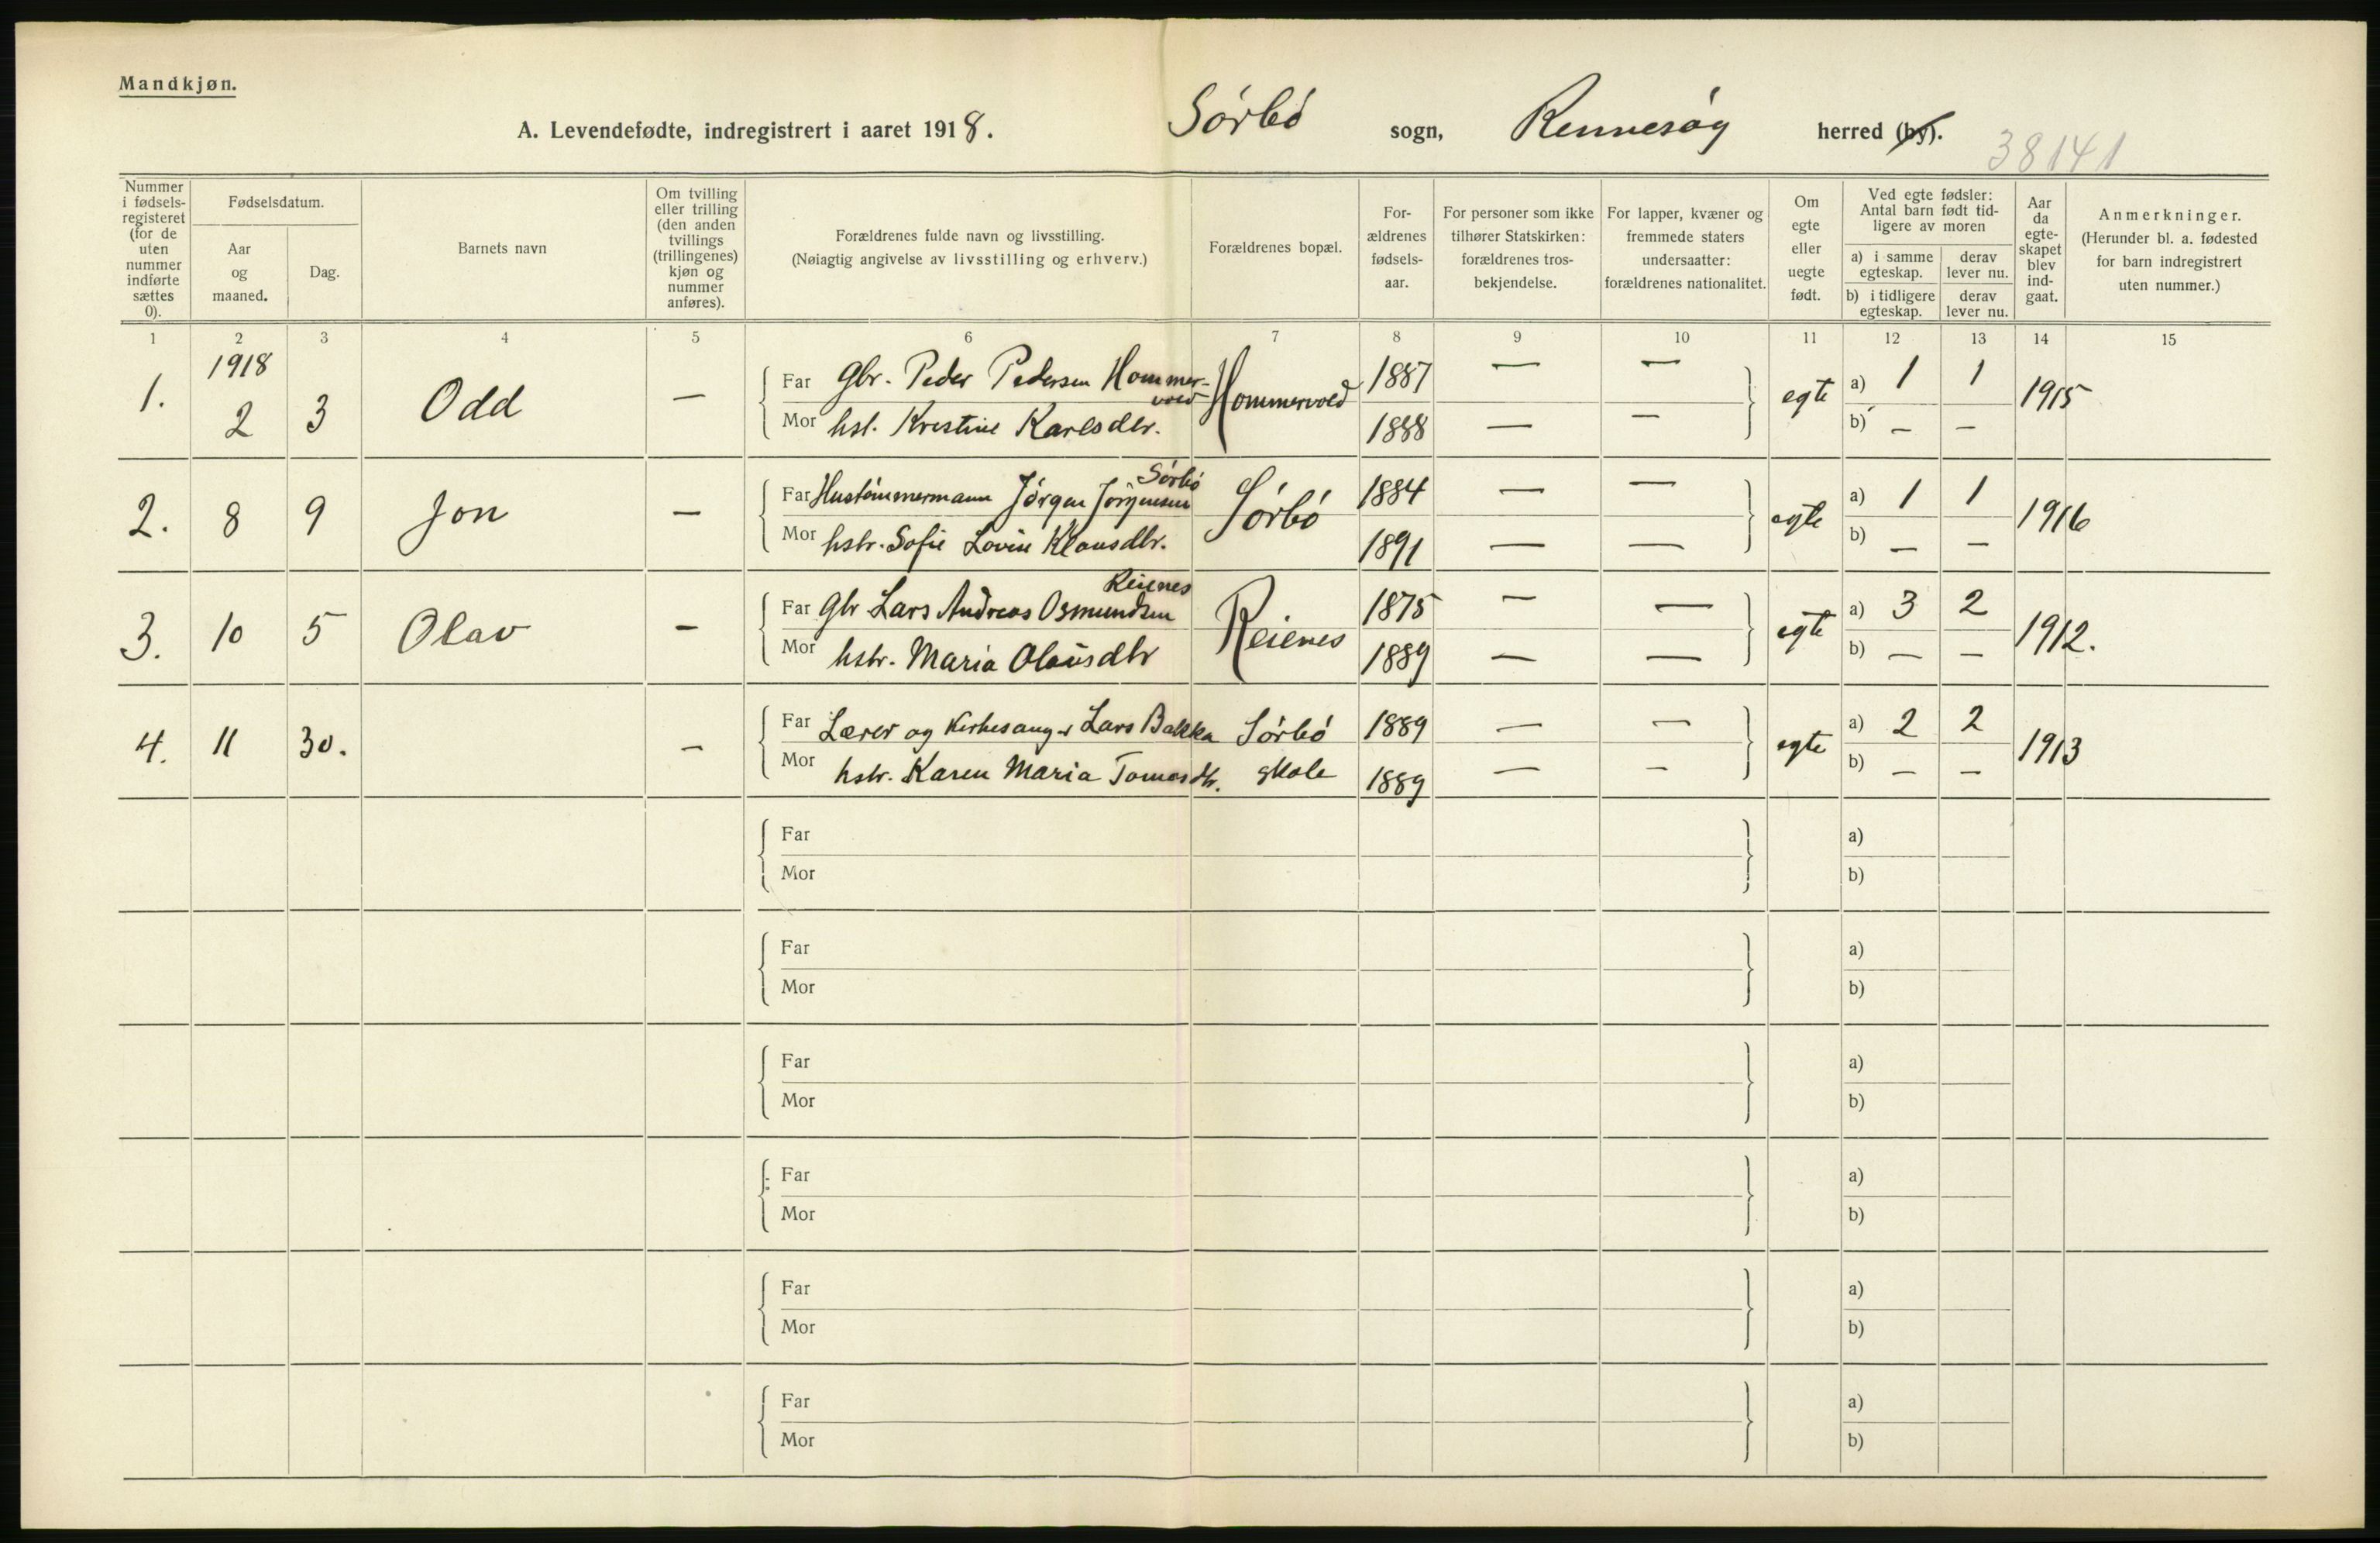 Mandkjøn.
A. Levendefødte, indregistrert i aaret 1918. Sórbó sogn, Rennesóy herred (by).
38141
Nummer i fødsels-registeret (for de uten nummer indførte sættes 0).
Fødselsdatum.
Aar og maaned.
Dag.
Barnets navn
Om tvilling eller trilling (den anden tvillings (trillingenes) kjøn og nummer anføres).
Forældrenes fulde navn og livsstilling.
(Nøiagtig angivelse av livsstilling og erhverv.)
Forældrenes bopæl.
For-ældrenes fødsels-aar.
For personer som ikke tilhører Statskirken: forældrenes tros-bekjendelse.
For lapper, kvæner og fremmede staters undersaatter: forældrenes nationalitet.
Om egte eller uegte født.
Ved egte fødsler: Antal barn født tid-ligere av moren
a) i samme egteskap.
derav lever nu.
b) i tidligere egteskap.
derav lever nu.
Aar da egte-skapet blev ind-gaat.
Anmerkninger.
(Herunder bl. a. fødested for barn indregistrert uten nummer.)
1 2 3 4 5 6 7 8 9 10 11 12 13 14 15
1918
1. 2 3 Odd — Far Gbr. Peder Pedersen Hommer-vold Hommervold 1887 — — egte a) 1 1 1915
Mor hst. Kristine Karlsdtr. 1888 — — b) — —
2. 8 9 Jon — Far Hustómmermann Jórgen Jórgensen Sórbó Sórbó 1884 — — egte a) 1 1 1916
Mor hstr. Sofie Lovise Klausdtr. 1891 — — b) — —
3. 10 5 Olav — Far Gbr Lars Andreas Osmundsen Reienes Reienes 1875 — — egte a) 3 2 1912.
Mor hstr. Maria Olausdtr 1889 — — b) — —
4. 11 30. — Far Lærer og Kirkesanger Lars Bakka Sórbó 1889 — — egte a) 2 2 1913
Mor hstr. Karen Maria Tomasdtr. skole 1889 — — b) — —
Far a)
Mor b)
Far a)
Mor b)
Far a)
Mor b)
Far a)
Mor b)
Far a)
Mor b)
Far a)
Mor b)